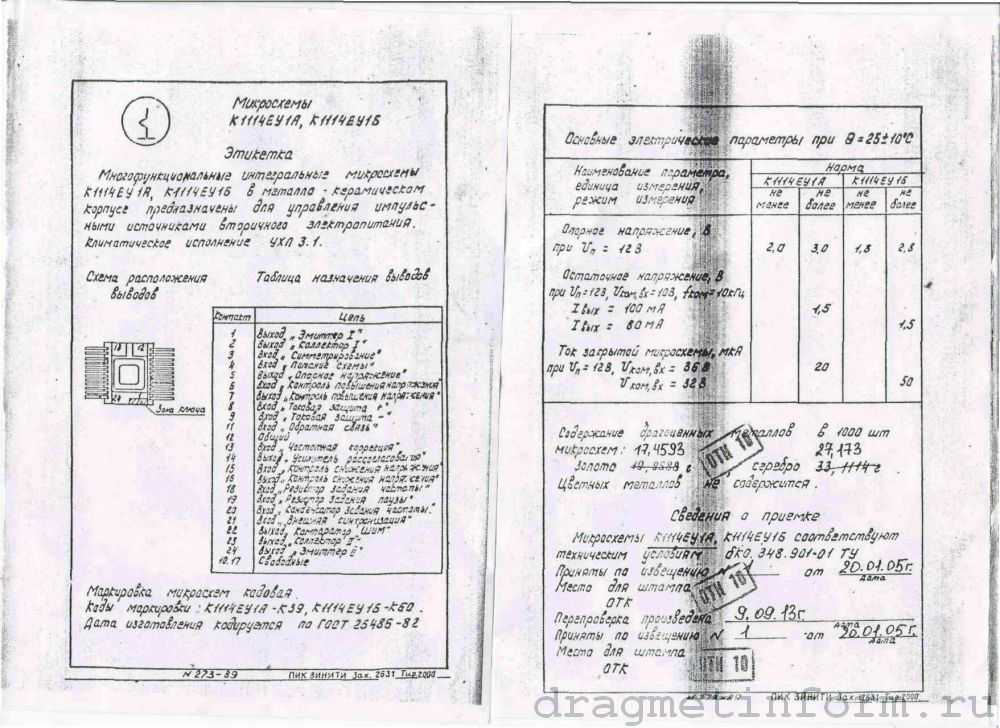 Микросхемы
К1114ЕУ1А, К1114ЕУ1Б
Этикетка
Многофункциональные интегральные микросхемы
К1114ЕУ1А, К1114ЕУ1Б в металло-керамическом
корпусе предназначены для управления импульс-
ными источниками вторичного электропитания.
Климатическое исполнение УХЛ 3.1.
Схема расположения
выводов
13 12
24
Зона ключа
Таблица назначения выводов
Контакт Цепь
1 Выход "Эмиттер I"
2 Выход "Коллектор I"
3 Вход "Симметрирование"
4 Вход "Питание схемы"
5 Выход "Опорное напряжение"
6 Вход "Контроль повышения напряжения"
7 Выход "Контроль повышения напряжения"
8 Вход "Токовая защита +"
9 Вход "Токовая защита -"
11 Вход "Обратная связь"
12 Общий
13 Вход "Частотная коррекция"
14 Выход "Усилитель рассогласования"
15 Вход "Контроль снижения напряжения"
16 Выход "Контроль снижения напряжения"
18 Вход "Резистор задания частоты"
19 Вход "Резистор задания паузы"
20 Вход "Конденсатор задания частоты"
21 Вход "Внешняя синхронизация"
22 Выход "Компаратор ШИМ"
23 Выход "Коллектор II"
24 Выход "Эмиттер II"
10,17 Свободные
Маркировка микросхем кодовая.
Коды маркировки: К1114ЕУ1А-К59, К1114ЕУ1Б-К60.
Дата изготовления кодируется по ГОСТ 25486-82
N 273-89 ПИК ВИНИТИ Зак. 2631 Тир.2000
Основные электрические параметры при Θ = 25±10°С
Наименование параметра,
единица измерения,
режим измерения
Норма
К1114ЕУ1А К1114ЕУ1Б
не менее не более не менее не более
Опорное напряжение, В
при Uп = 12В 2,0 3,0 1,8 2,8
Остаточное напряжение, В
при Uп=12В, Uком,вх=10В, fком=10кГц
Iвых = 100 мА 1,5
Iвых = 80 мА 1,5
Ток закрытой микросхемы, мкА
при Uп=12В, Uком,вх = 36В 20
Uком,вх = 32В 50
Содержание драгоценных металлов в 1000 шт
микросхем: 17,4593 27,173
Золото г серебро 33,1114 г
Цветных металлов не содержится.
ОТК 10
Сведения о приемке
Микросхемы К1114ЕУ1А, К1114ЕУ1Б соответствуют
техническим условиям бК0.348.901-01 ТУ
Приняты по извещению N от 20.01.05г.
дата
Место для штампа
ОТК
ОТК 10
Перепроверка произведена 9.09.13г.
дата
Приняты по извещению N 1 от 20.01.05г.
дата
Место для штампа
ОТК
ОТК 10
ПИК ВИНИТИ Зак. 2631 Тир.2000
dragmetinform.ru